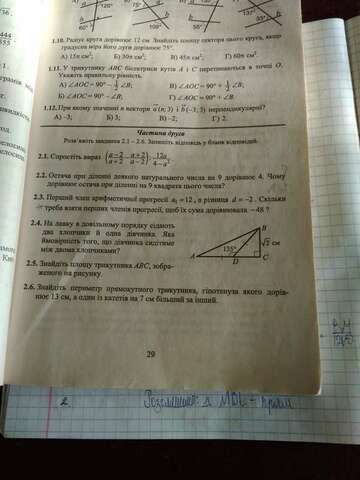 60°
75°
109°
137°
95°
1.10. Радіус круга дорівнює 12 см. Знайдіть площу сектора цього круга, якщо
градусна міра його дуги дорівнює 75°.
А) 15π см²; Б) 30π см²; В) 45π см²; Г) 60π см².
1.11. У трикутнику ABC бісектриси кутів A і C перетинаються в точці O.
Укажіть правильну рівність.
А) ∠AOC = 90° − ½ ∠B; В) ∠AOC = 90° + ½ ∠B;
Б) ∠AOC = 90° − ∠B; Г) ∠AOC = 90° + ∠B.
1.12. При якому значенні n вектори a(n; 3) і b(−3; 3) перпендикулярні?
А) −3; Б) 3; В) −2; Г) 2.
Частина друга
Розв'яжіть завдання 2.1 – 2.6. Запишіть відповідь у бланк відповідей.
2.1. Спростіть вираз (a−2/a+2 − a+2/a−2) : 12a/4−a².
2.2. Остача при діленні деякого натурального числа на 9 дорівнює 4. Чому
дорівнює остача при діленні на 9 квадрата цього числа?
2.3. Перший член арифметичної прогресії a₁ = 12, а різниця d = −2. Скільки
треба взяти перших членів прогресії, щоб їх сума дорівнювала −48 ?
2.4. На лавку в довільному порядку сідають
два хлопчики й одна дівчинка. Яка
ймовірність того, що дівчинка сидітиме
між двома хлопчиками?
B
135°
√2 см
A
D
C
2.5. Знайдіть площу трикутника ABC, зобра-
женого на рисунку.
2.6. Знайдіть периметр прямокутного трикутника, гіпотенуза якого дорів-
нює 13 см, а один із катетів на 7 см більший за інший.
29